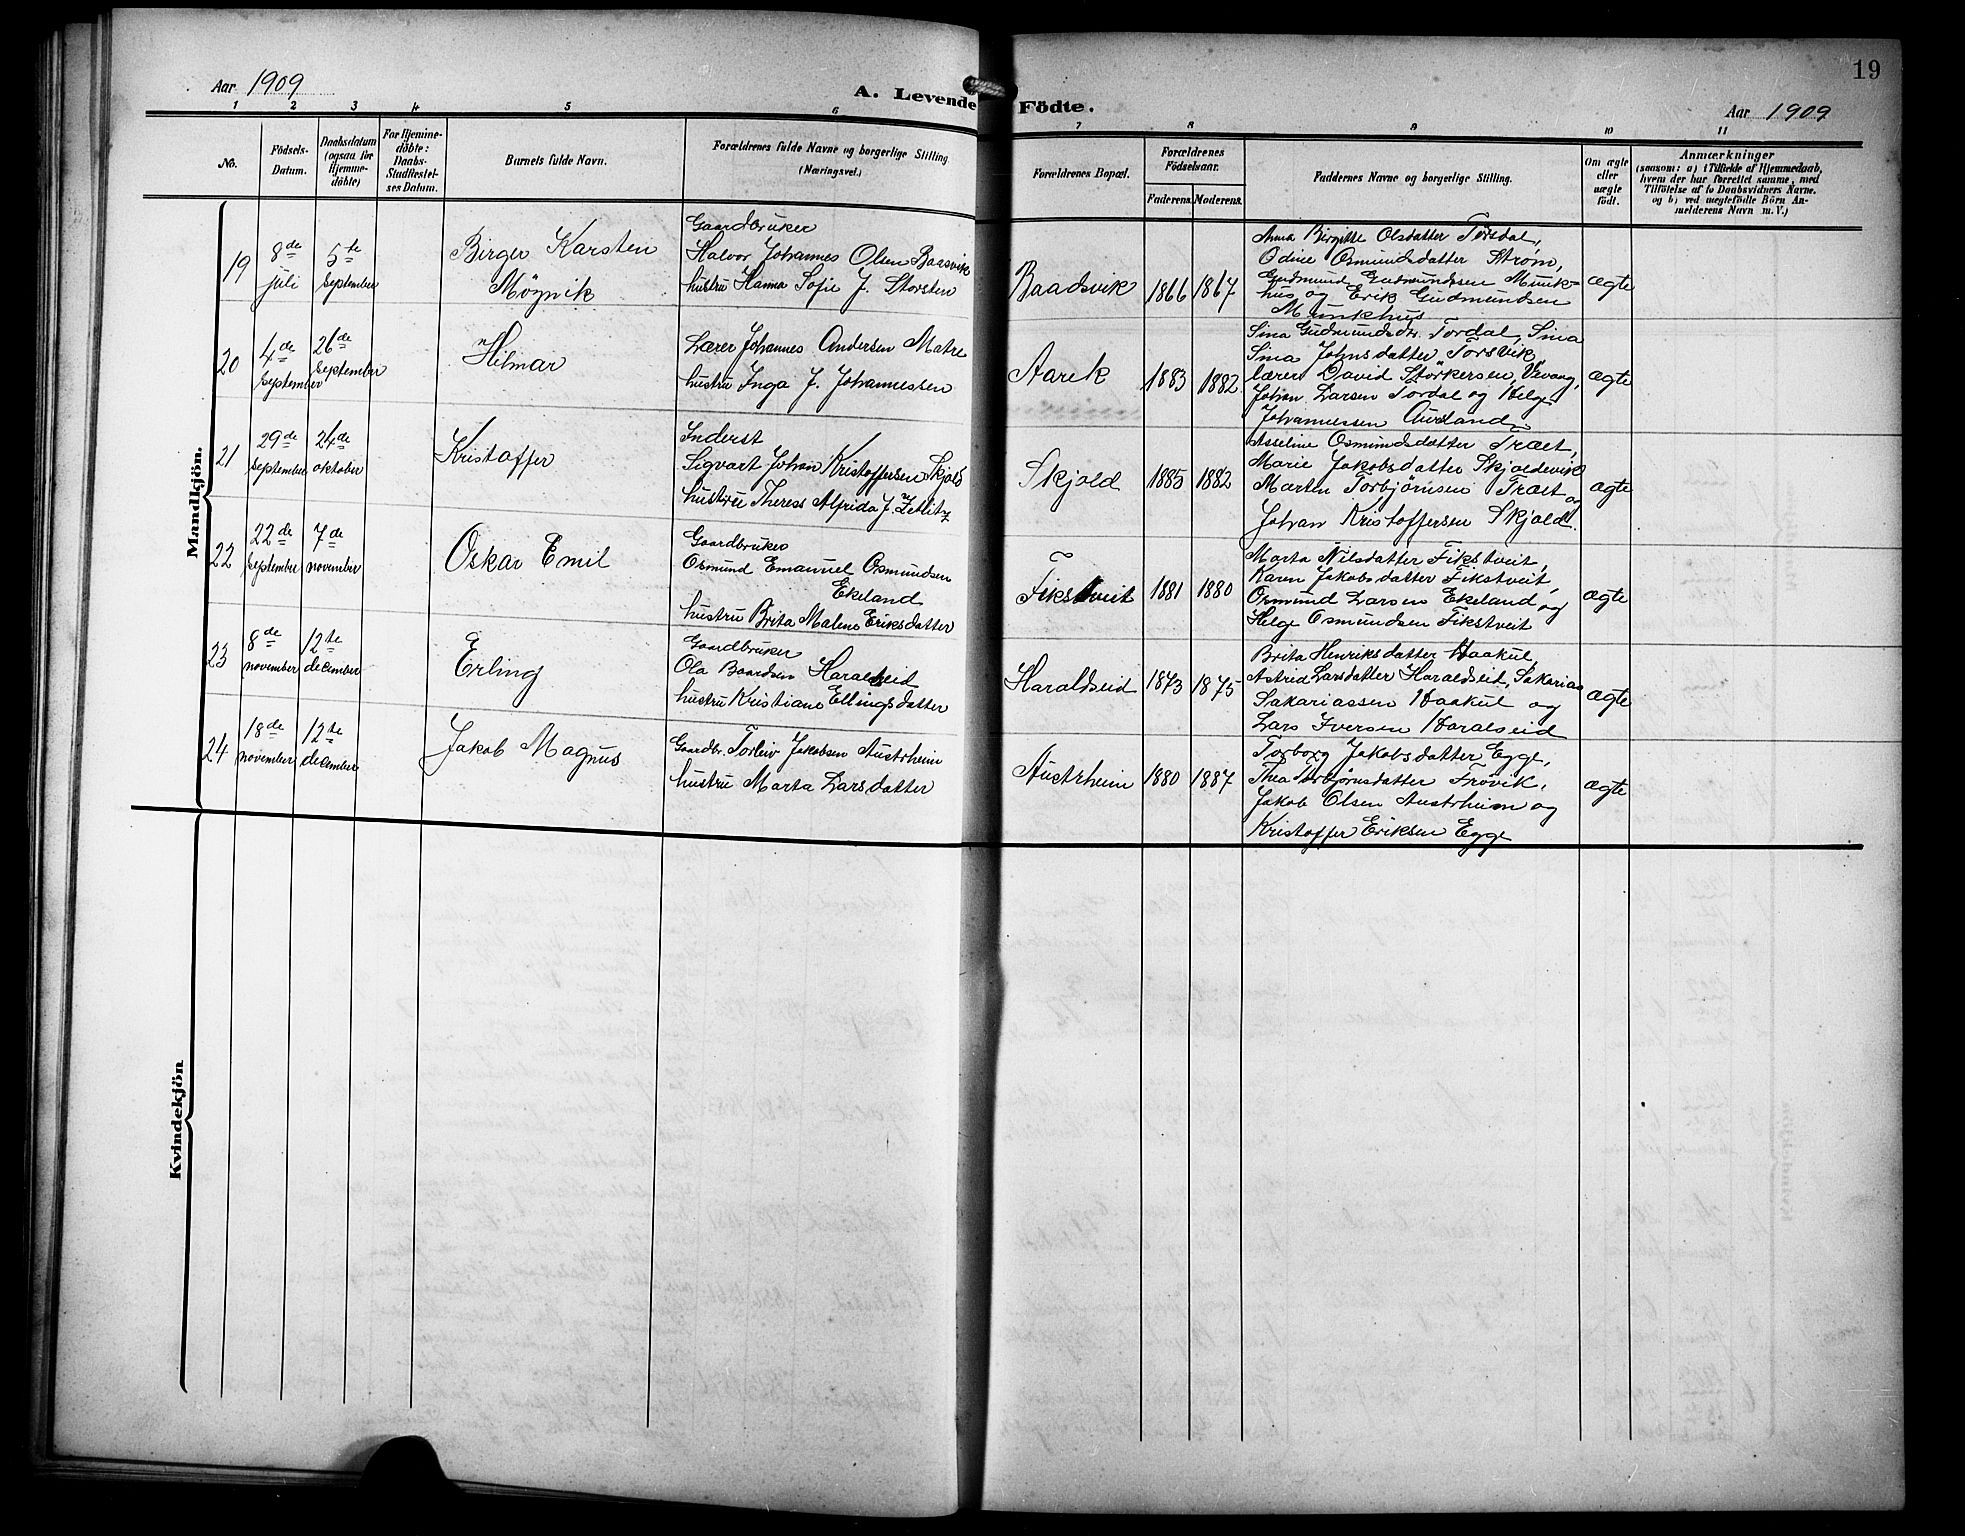 19
Aar 1909
A. Levende Födte.
Aar 1909
1 2 3 4 5 6 7 8 9 10 11
No.
Födsels-
Datum.
Daabsdatum
(ogsaa for
Hjemme-
döbte)
For Hjemme-
döbte:
Daabs-
Stadfæstel-
ses Datum.
Barnets fulde Navn.
Forældrenes fulde Navne og borgerlige Stilling
(Næringsvei.)
Forældrenes Bopæl.
Forældrenes
Födselsaar.
Faderens. Moderens.
Faddernes Navne og borgerlige Stilling.
Om ægte
eller
uægte
födt.
Anmærkninger
(saasom: a) i Tilfælde af Hjemmedaab,
hvem der har forrettet samme, med
Tilföielse af to Daabsvidners Navne.
og b) ved uægtefödte Börn An-
melderens Navn m. V.)
Mandkjön.
19
8de
juli
5te
September
Birger Karsten
Möynik
Gaardbruker
Halvor Johannes Olsen Baasvik
hustru Hanna Sofie J. Storsten
Baadsvik
1866 1867
Anna Birgitte Olsdatter Torsdal,
Odine Osmundsdatter Strøm,
Gudmund Gudmundsen Munk-
hus og Erik Gudmundsen
Munkhus
ægte
20
4de
September
26de
September
Hilmar
Lærer Johannes Andersen Matre
hustru Inga J. Johannessen
Aarek
1883 1882
Sina Gudmundsdtr. Tordal, Sina
Sina Johnsdatter Torsvik,
lærer David Størkersen, Vevang,
Johan Larsen Tordal og Helge
Johannessen Aurland
ægte
21
29de
September
24de
oktober
Kristoffer
Inderst
Sigvart Johan Kristoffersen Skjold
hustru Theress Alfrida J. Zetlitz
Skjold
1885 1882
Asseline Osmundsdatter Træet,
Marie Jakobsdatter Skjoldevik
Marten Torbjørnsen Træet og
Johan Kristoffersen Skjold.
ægte
22
22de
September
7de
november
Oskar Emil
Gaardbruker
Osmund Emanuel Osmundsen
Ekeland
hustru Brita Malene Eriksdatter
Fikstveit
1881 1880
Marta Nilsdatter Fikstveit,
Karen Jakobsdatter Fikstveit,
Osmund Larsen Ekeland og
Helge Osmundsen Fikstveit
ægte
23
8de
november
12te
december
Erling
Gaardbruker
Ola Baardsen Haraldseid
hustru Kristiane Ellingsdatter
Haraldseid
1873 1875
Brita Henriksdatter Haakul,
Astrid Larsdatter Haraldseid, Sakarias
Sakariassen Haakul og
Lars Iversen Haralseid
ægte
24
18de
november
12te
december
Jakob Magnus
Gaardbr. Torleiv Jakobsen Austrheim
hustru Marta Larsdatter
Austrheim
1880 1887
Torborg Jakobsdatter Egge,
Thea Torbjørnsdatter Frøvik,
Jakob Olsen Austrheim og
Kristoffer Eriksen Egge
ægte
Kvindekjön